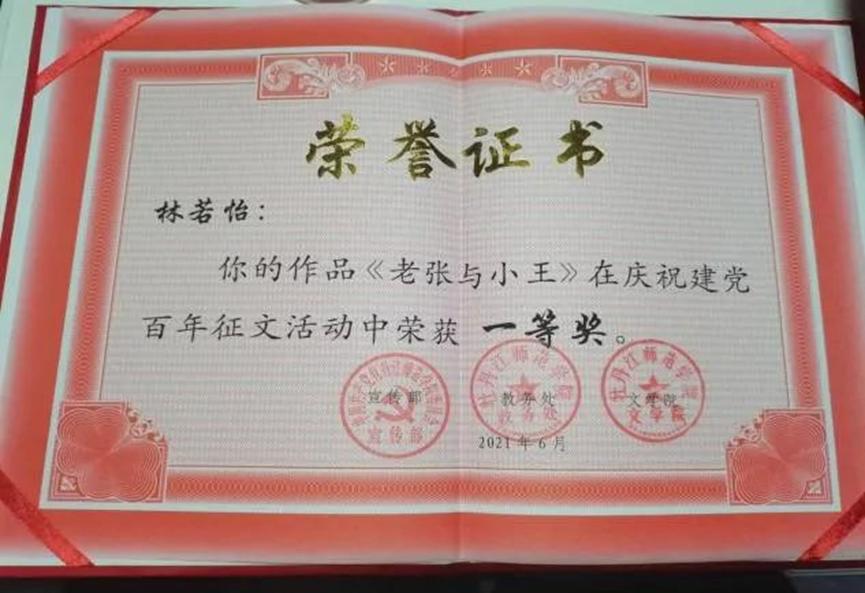 荣誉证书
林若怡：
你的作品《老张与小王》在庆祝建党
百年征文活动中荣获 一等奖。
宣传部
宣传部
牡丹江师范学院
教务处
教务处
牡丹江师范学院
文学院
文学院
2021年6月